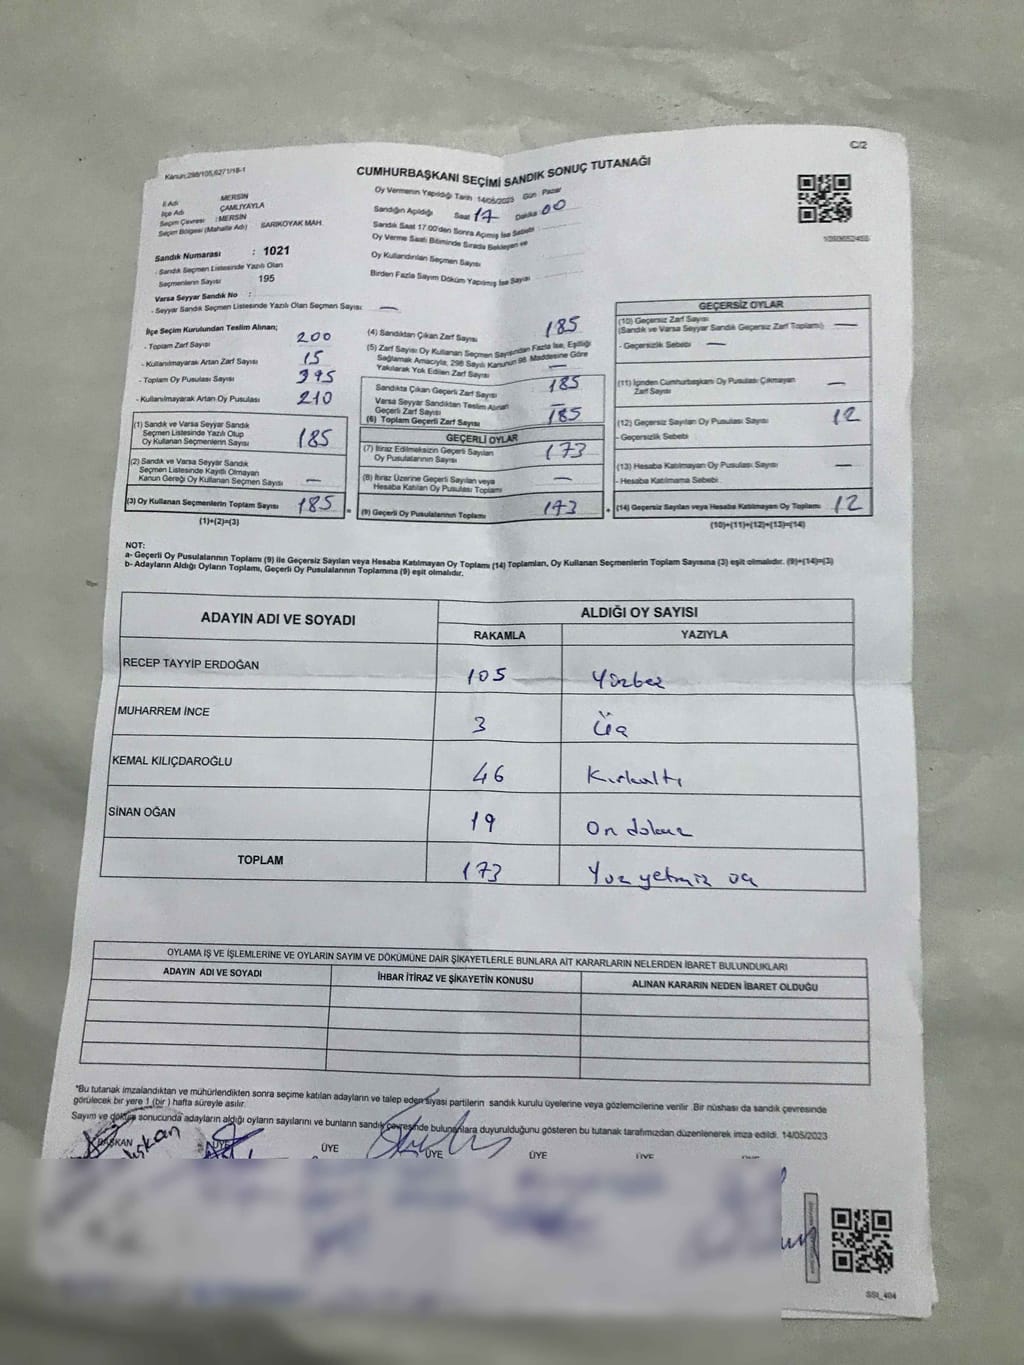 C/2
Kanun:298/105,6271/18-1
CUMHURBAŞKANI SEÇİMİ SANDIK SONUÇ TUTANAĞI
İl Adı : MERSİN
İlçe Adı : ÇAMLIYAYLA
Seçim Çevresi : MERSİN
Seçim Bölgesi (Mahalle Adı) : SARIKOYAK MAH.
Sandık Numarası : 1021
- Sandık Seçmen Listesinde Yazılı Olan
Seçmenlerin Sayısı 195
Varsa Seyyar Sandık No :
- Seyyar Sandık Seçmen Listesinde Yazılı Olan Seçmen Sayısı : —
Oy Vermenin Yapıldığı Tarih 14/05/2023 Gün Pazar
Sandığın Açıldığı Saat 17 Dakika 00
Sandık Saat 17.00'den Sonra Açılmış İse Sebebi
Oy Verme Saati Bitiminde Sırada Bekleyen ve
Oy Kullandırılan Seçmen Sayısı
Birden Fazla Sayım Döküm Yapılmış İse Sayısı
İlçe Seçim Kurulundan Teslim Alınan;
- Toplam Zarf Sayısı 200
- Kullanılmayarak Artan Zarf Sayısı 15
- Toplam Oy Pusulası Sayısı 395
- Kullanılmayarak Artan Oy Pusulası 210
(1) Sandık ve Varsa Seyyar Sandık
Seçmen Listesinde Yazılı Olup
Oy Kullanan Seçmenlerin Sayısı 185
(2) Sandık ve Varsa Seyyar Sandık
Seçmen Listesinde Kayıtlı Olmayan
Kanun Gereği Oy Kullanan Seçmen Sayısı —
(3) Oy Kullanan Seçmenlerin Toplam Sayısı 185
(1)+(2)=(3)
(4) Sandıktan Çıkan Zarf Sayısı 185
(5) Zarf Sayısı Oy Kullanan Seçmen Sayısından Fazla İse, Eşitliği
Sağlamak Amacıyla, 298 Sayılı Kanunun 98. Maddesine Göre
Yakılarak Yok Edilen Zarf Sayısı —
Sandıkta Çıkan Geçerli Zarf Sayısı 185
Varsa Seyyar Sandıktan Teslim Alınan
Geçerli Zarf Sayısı —
(6) Toplam Geçerli Zarf Sayısı 185
GEÇERLİ OYLAR
(7) İtiraz Edilmeksizin Geçerli Sayılan
Oy Pusulalarının Sayısı 173
(8) İtiraz Üzerine Geçerli Sayılan veya
Hesaba Katılan Oy Pusulası Toplamı —
(9) Geçerli Oy Pusulalarının Toplamı 173
=
+
GEÇERSİZ OYLAR
(10) Geçersiz Zarf Sayısı
(Sandık ve Varsa Seyyar Sandık Geçersiz Zarf Toplamı) —
- Geçersizlik Sebebi —
(11) İçinden Cumhurbaşkanı Oy Pusulası Çıkmayan
Zarf Sayısı —
(12) Geçersiz Sayılan Oy Pusulası Sayısı 12
- Geçersizlik Sebebi
(13) Hesaba Katılmayan Oy Pusulası Sayısı —
- Hesaba Katılmama Sebebi
(14) Geçersiz Sayılan veya Hesaba Katılmayan Oy Toplamı 12
(10)+(11)+(12)+(13)=(14)
NOT:
a- Geçerli Oy Pusulalarının Toplamı (9) ile Geçersiz Sayılan veya Hesaba Katılmayan Oy Toplamı (14) Toplamları, Oy Kullanan Seçmenlerin Toplam Sayısına (3) eşit olmalıdır. (9)+(14)=(3)
b- Adayların Aldığı Oyların Toplamı, Geçerli Oy Pusulalarının Toplamına (9) eşit olmalıdır.
ADAYIN ADI VE SOYADI
ALDIĞI OY SAYISI
RAKAMLA YAZIYLA
RECEP TAYYİP ERDOĞAN 105 Yüzbeş
MUHARREM İNCE 3 Üç
KEMAL KILIÇDAROĞLU 46 Kırkaltı
SİNAN OĞAN 19 On dokuz
TOPLAM 173 Yüz yetmiş üç
OYLAMA İŞ VE İŞLEMLERİNE VE OYLARIN SAYIM VE DÖKÜMÜNE DAİR ŞİKAYETLERLE BUNLARA AİT KARARLARIN NELERDEN İBARET BULUNDUKLARI
ADAYIN ADI VE SOYADI İHBAR İTİRAZ VE ŞİKAYETİN KONUSU ALINAN KARARIN NEDEN İBARET OLDUĞU
*Bu tutanak imzalandıktan ve mühürlendikten sonra seçime katılan adayların ve talep eden siyasi partilerin sandık kurulu üyelerine veya gözlemcilerine verilir. Bir nüshası da sandık çevresinde
görülecek bir yere 1 (bir) hafta süreyle asılır.
Sayım ve döküm sonucunda adayların aldığı oyların sayılarını ve bunların sandık çevresinde bulunanlara duyurulduğunu gösteren bu tutanak tarafımızdan düzenlenerek imza edildi. 14/05/2023
BAŞKAN ÜYE ÜYE ÜYE ÜYE ÜYE
SSI_404